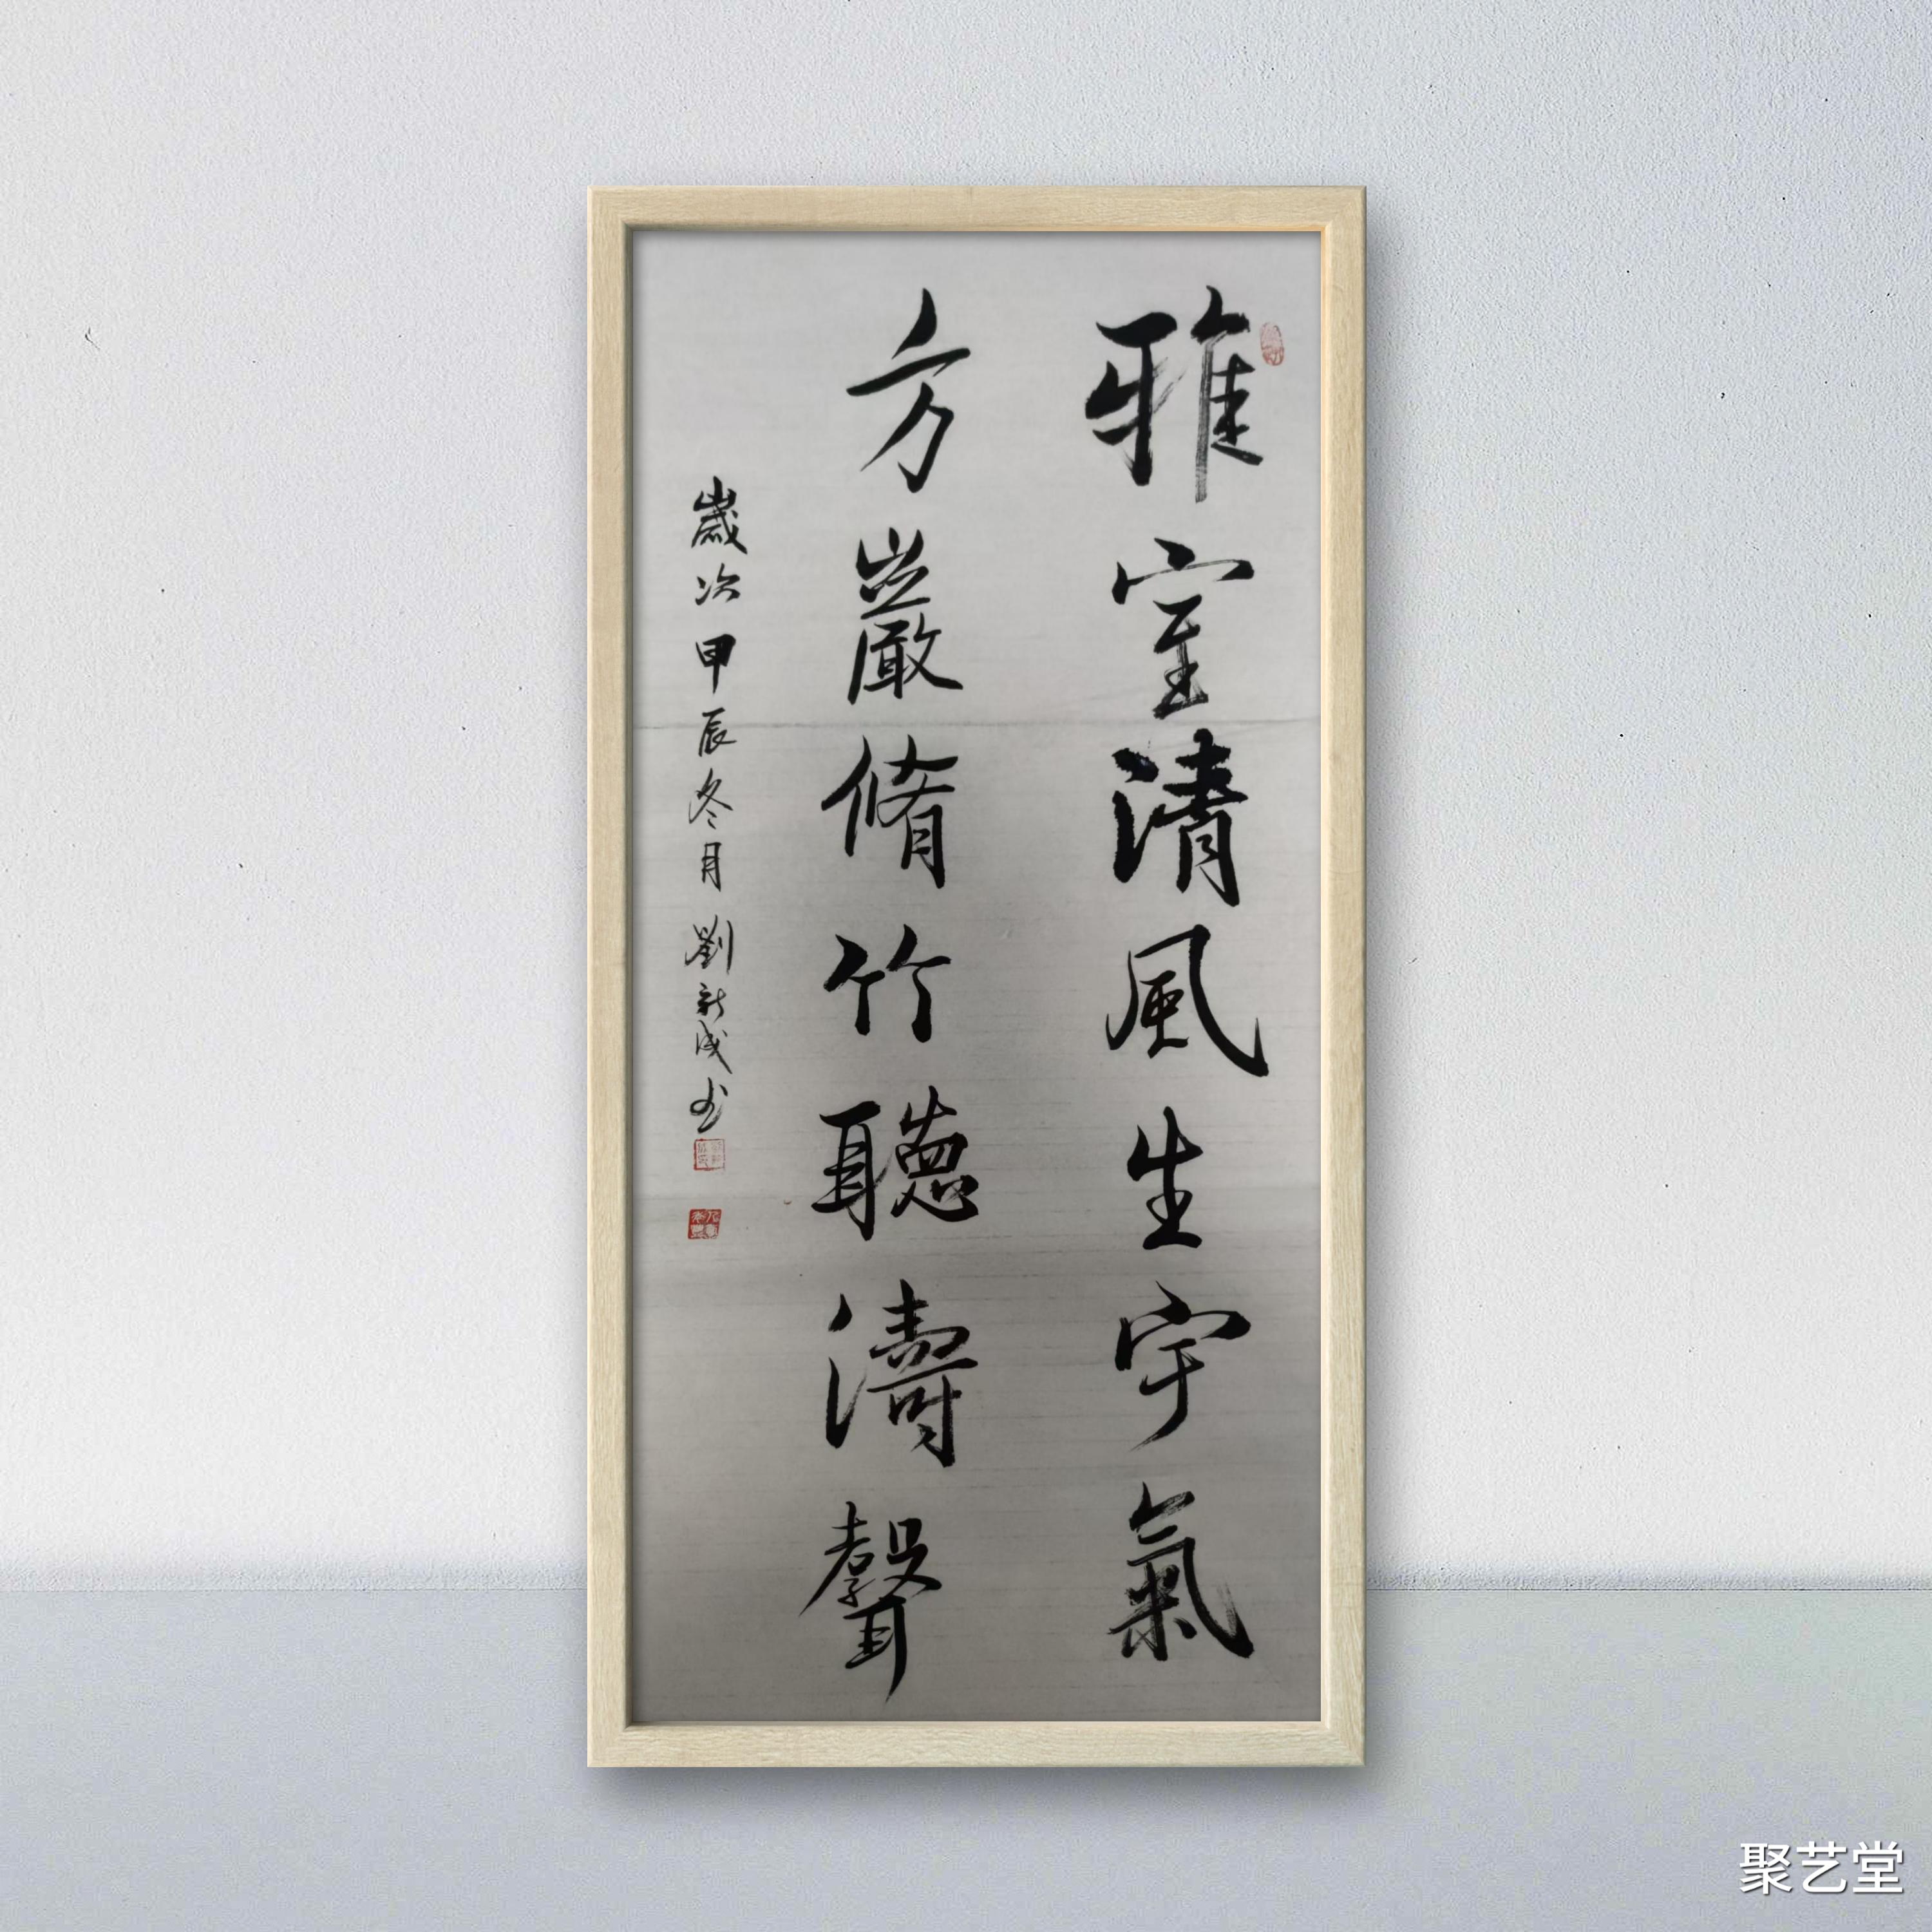 雅室清風生宇氣
方巖脩竹聽濤聲
歲次甲辰冬月劉新成书
聚艺堂